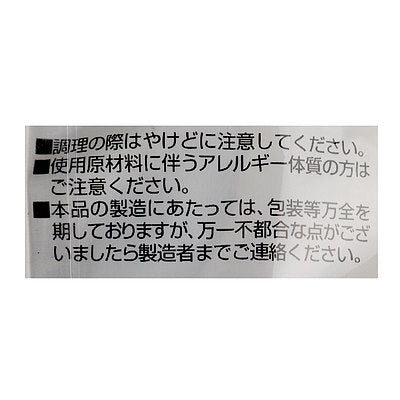 ■調理の際はやけどに注意してください。
■使用原材料に伴うアレルギー体質の方は
ご注意ください。
■本品の製造にあたっては、包装等万全を
期しておりますが、万一不都合な点がござ
いましたら製造者までご連絡ください。